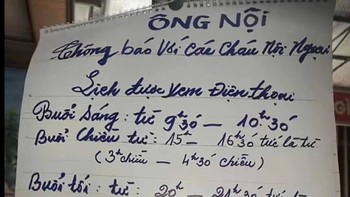 ÔNG NỘI
Thông báo Với Các Cháu Nội Ngoại
Lịch được Xem Điện thoại
Buổi Sáng: từ 9h30 – 10h30
Buổi Chiều từ: 15h – 16h30 tức là từ
(3h chiều – 4h30 chiều)
Buổi tối: từ: 20h – 21h30 tức là